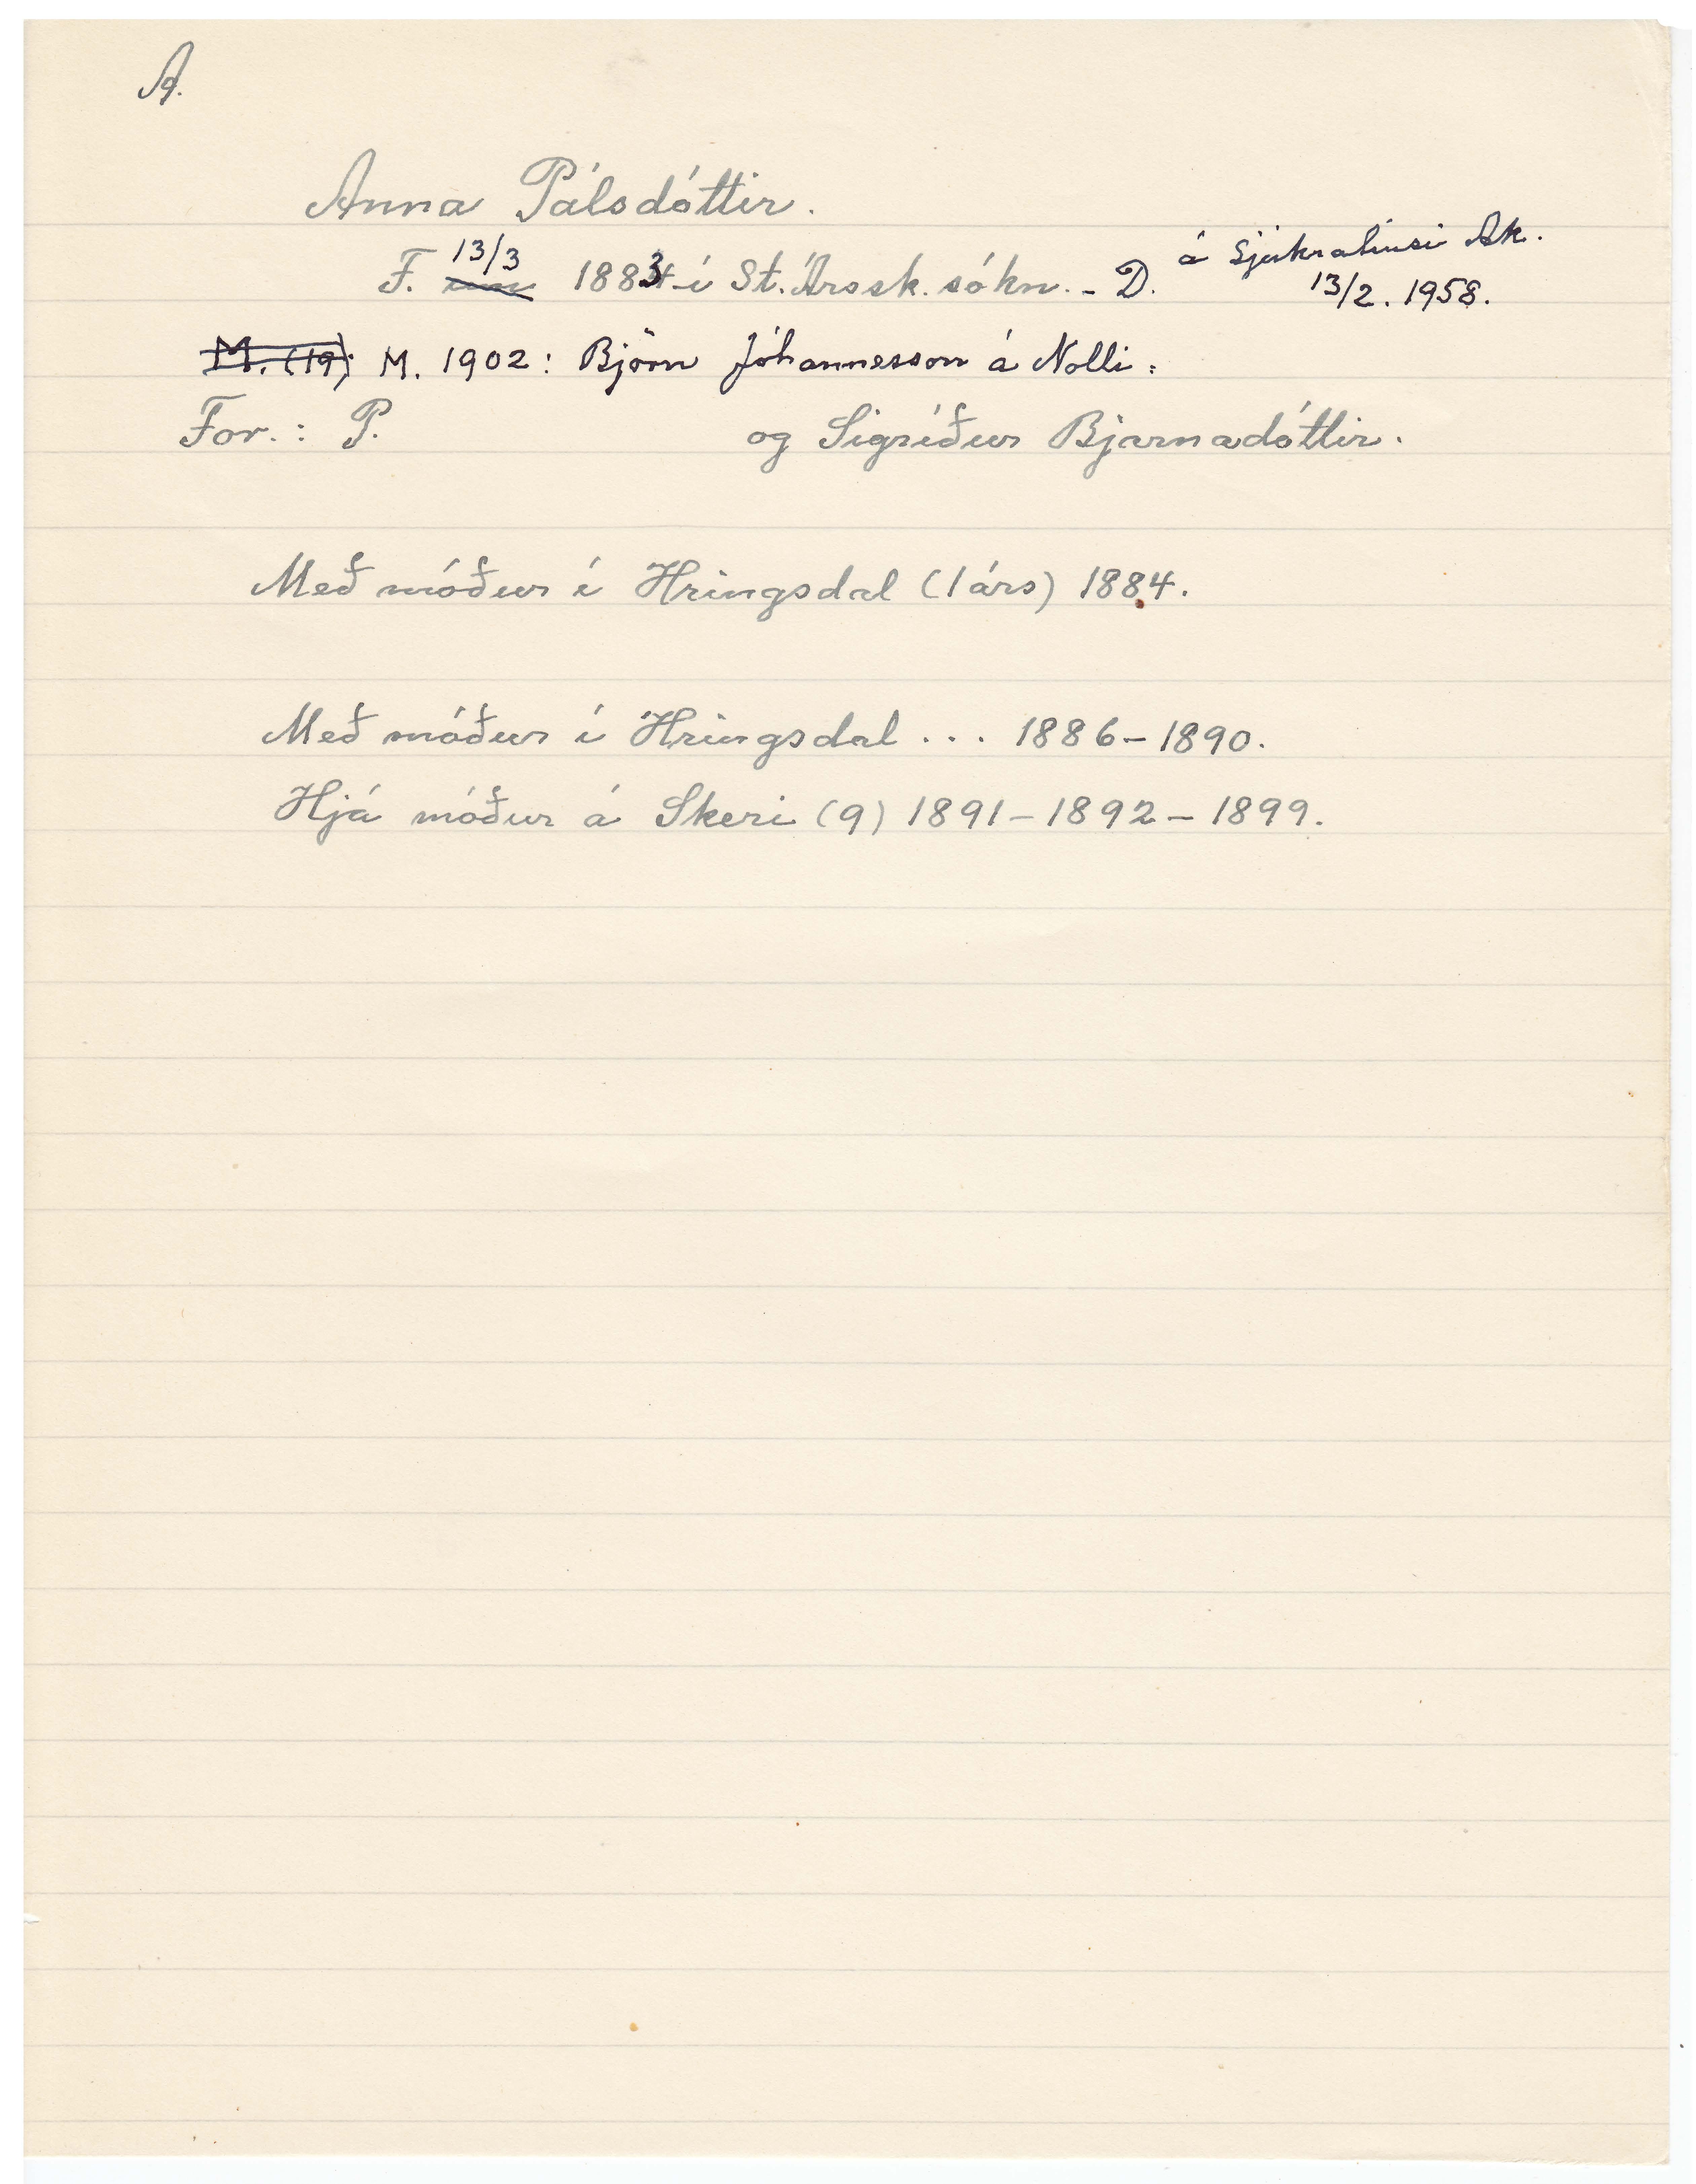 A.
Anna Pálsdóttir.
F. 13/3 1883 í St. Árssk. sókn. - D. á Sjúkrahúsi Ak.
13/2. 1958.
M. (19) M. 1902: Björn Jóhannesson á Nolli.
For.: P. og Sigríður Bjarnadóttir.
Með móður í Hringsdal (1 árs) 1884.
Með móður í Hringsdal ... 1886-1890.
Hjá móður á Skeri (9) 1891-1892-1899.